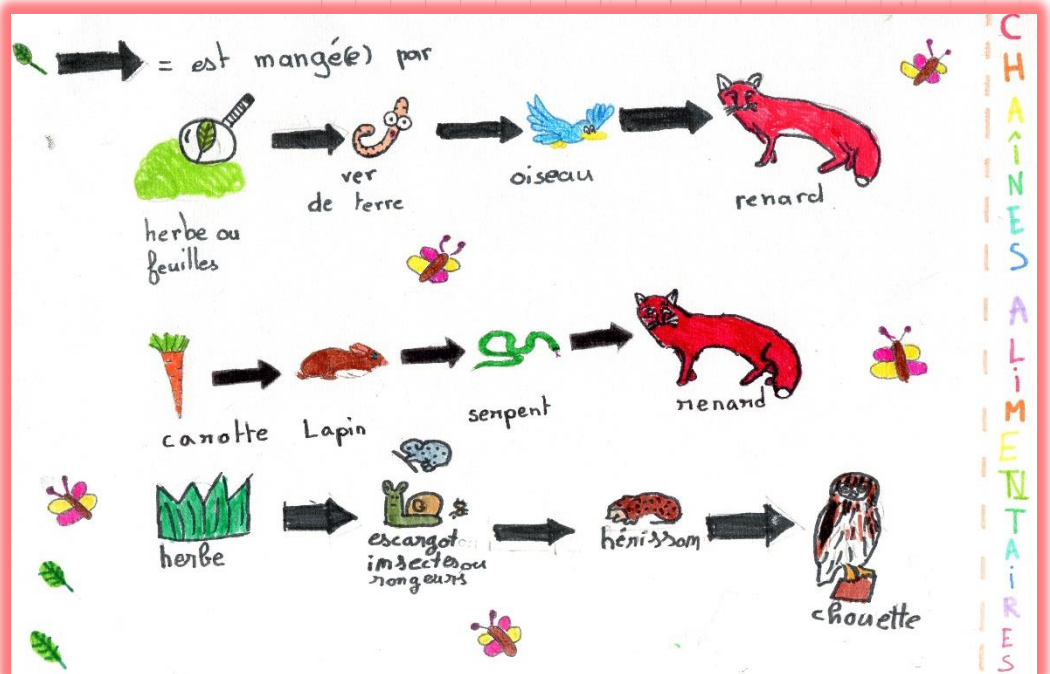 = est mangé(e) par
ver
de terre
oiseau
renard
herbe ou
feuilles
carotte
Lapin
serpent
renard
herbe
escargot
insectes ou
rongeurs
hérisson
chouette
CHAÎNES ALIMENTAIRES